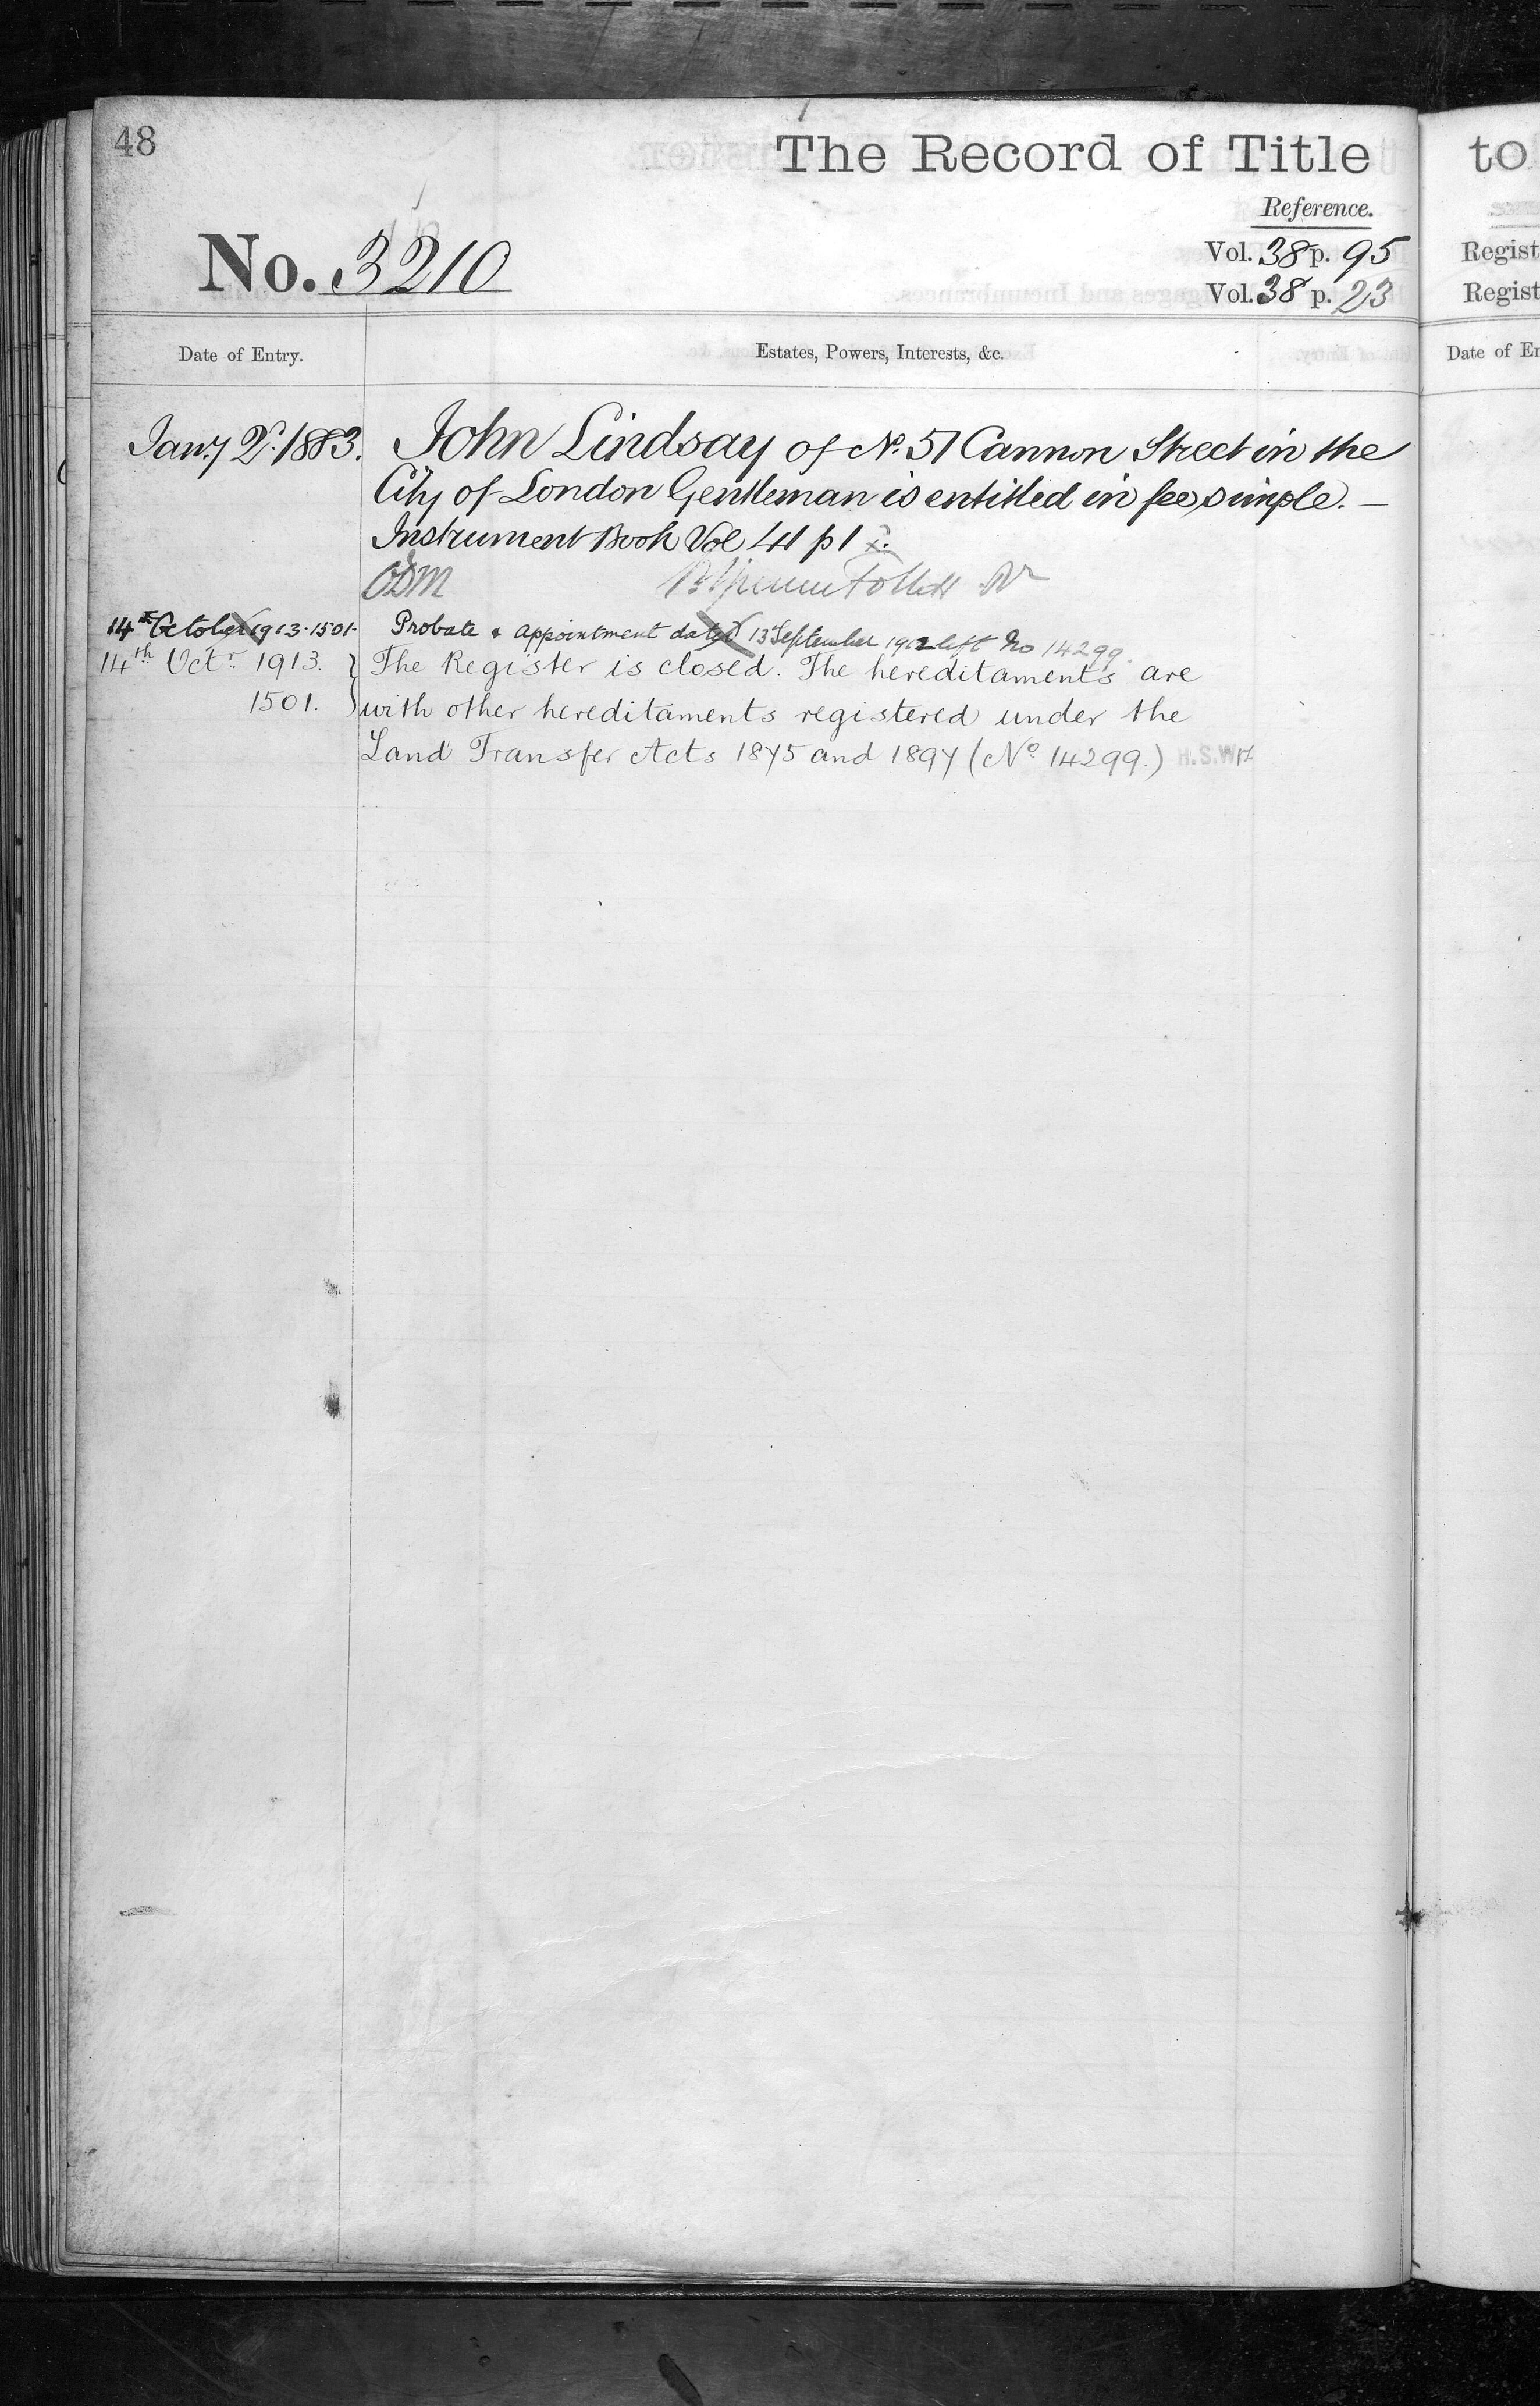 48
The Record of Title
Reference.
No. 3210
Vol. 38 p. 95
Vol. 38 p. 23
Date of Entry.
Estates, Powers, Interests, &c.
Jany 2d. 1883.
John Lindsay of No. 51 Cannon Street in the
City of London Gentleman is entitled in fee simple. —
Instrument Book Vol 41 p 1
ODM
Follett
14th October 1913. 1501.
Probate & appointment dated 13 September 1912 left No 14299.
14th Octr. 1913.
The Register is closed. The hereditaments are
1501.
with other hereditaments registered under the
Land Transfer Acts 1875 and 1897 (No 14299.) H.S.W
to
Regist
Regist
Date of En